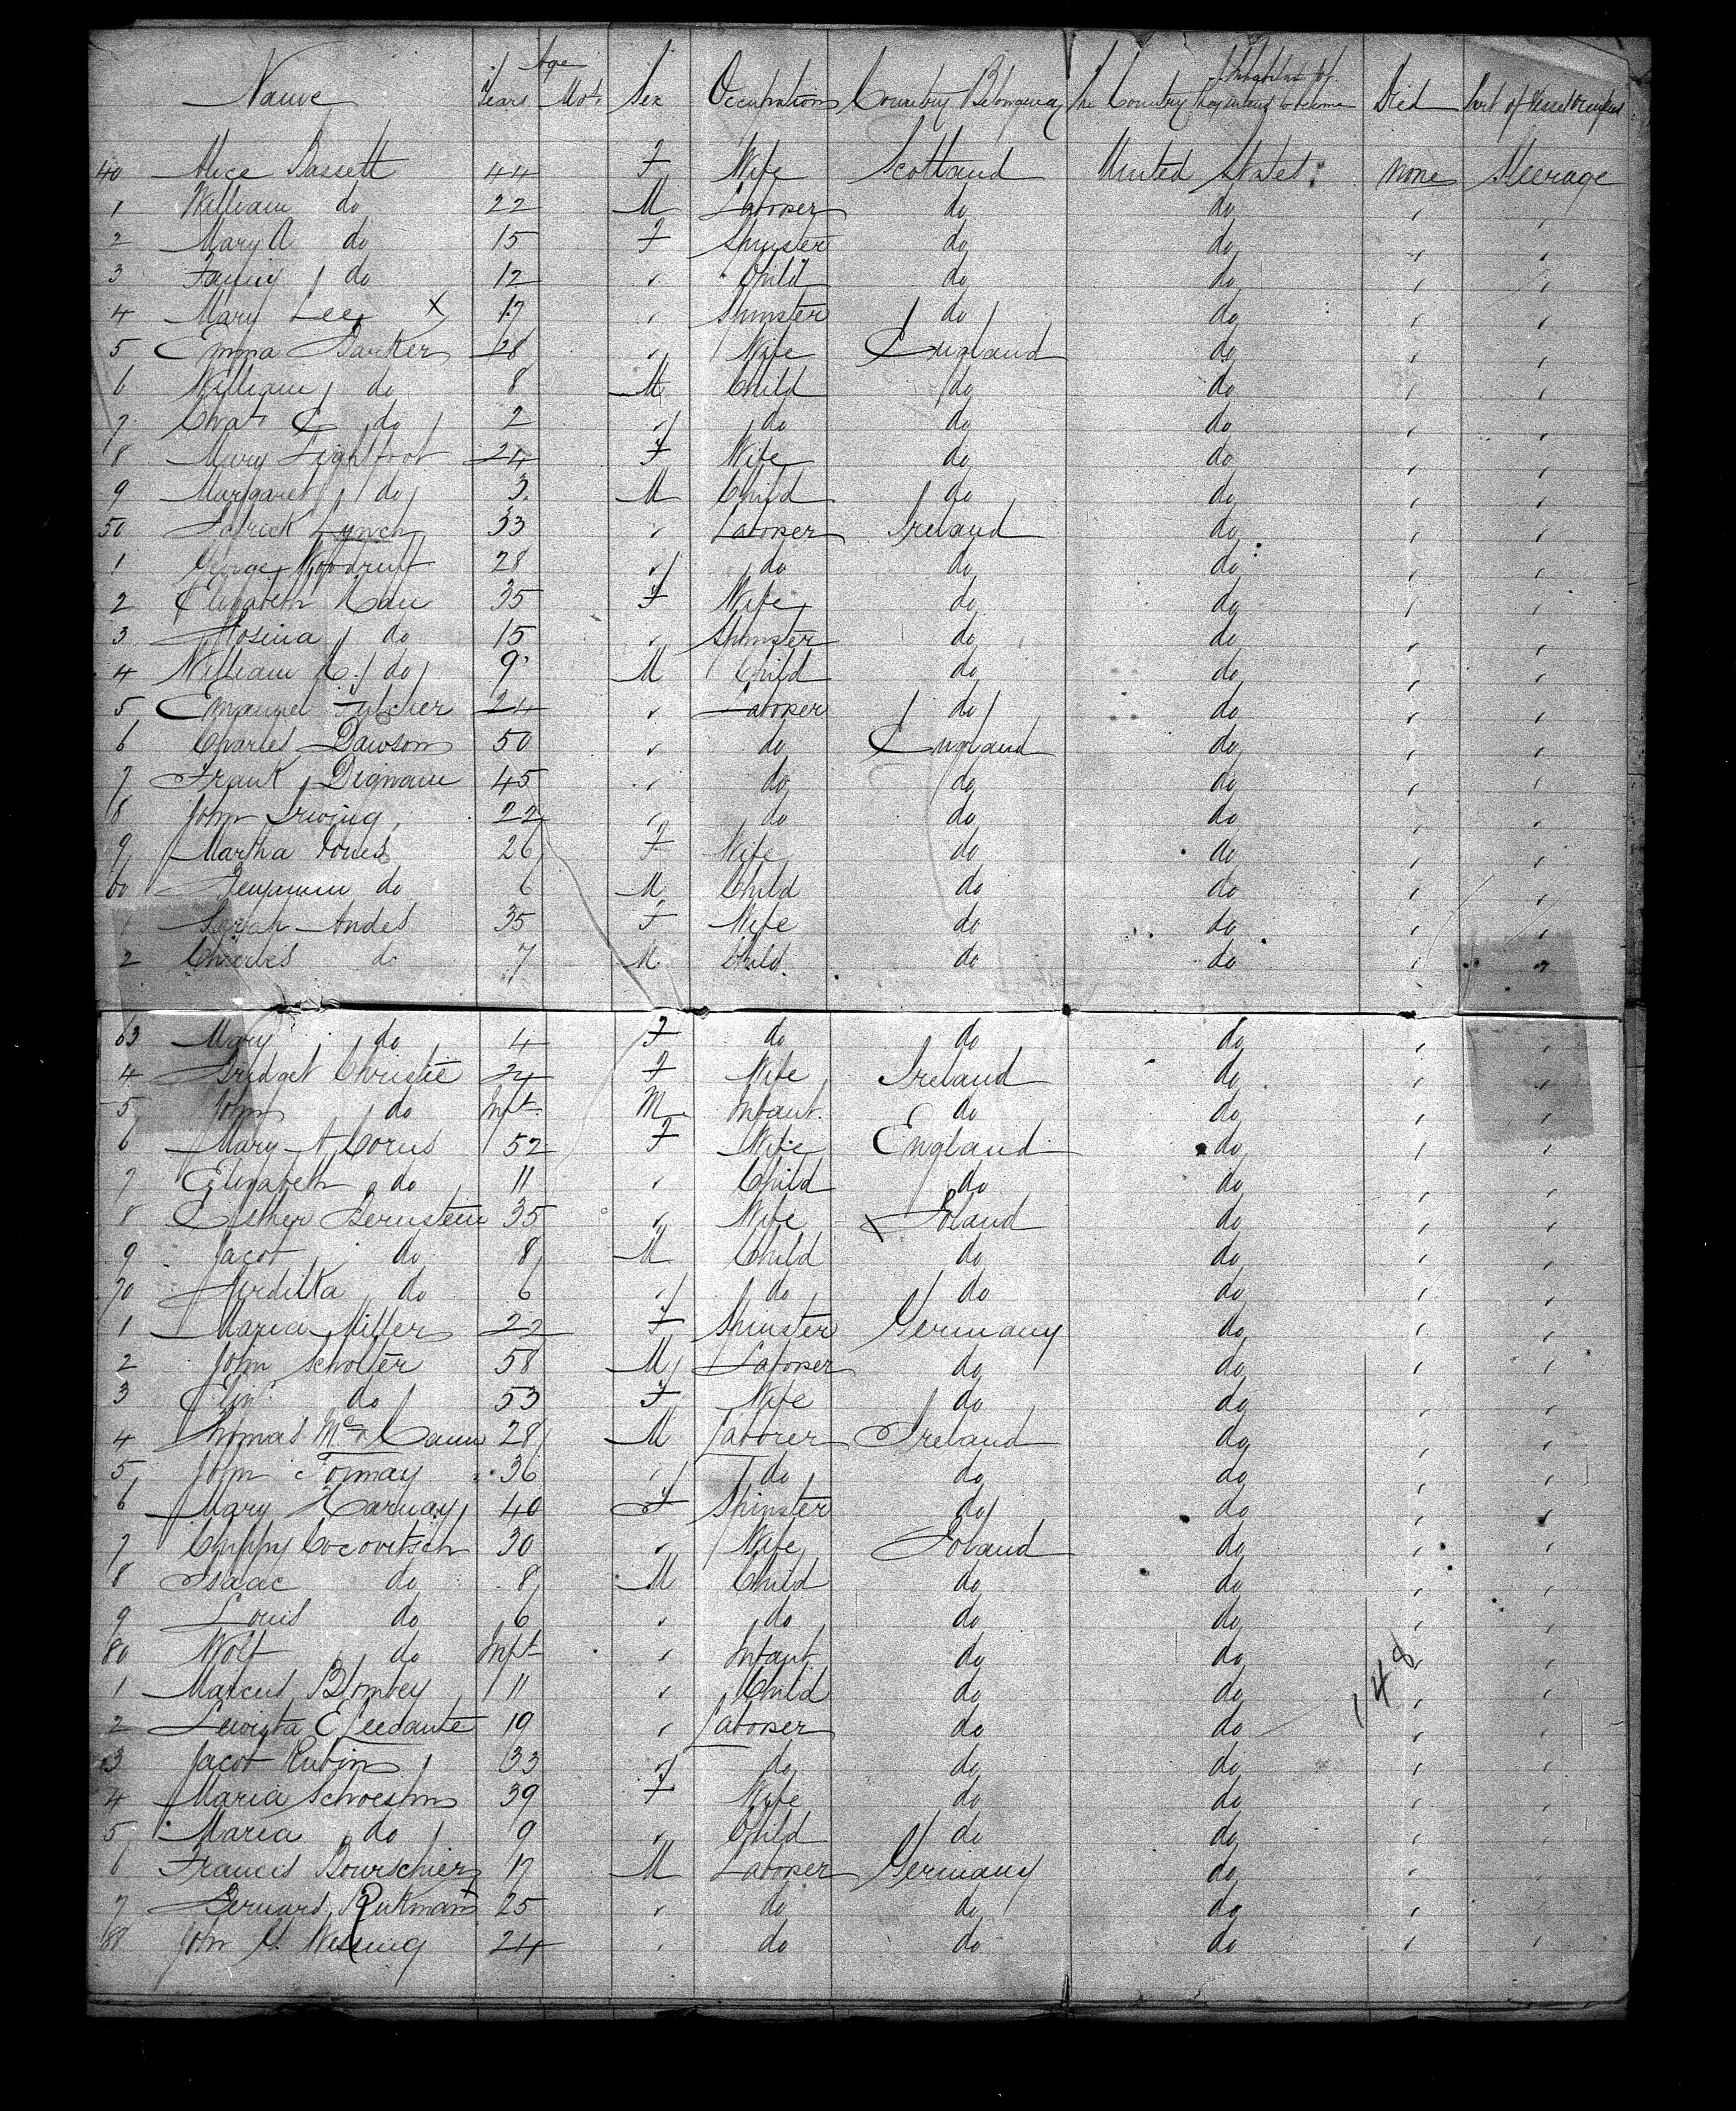 Name Age Years Mots. Sex Occupation Country Belonging The Country they intend to become Inhabitants of Died Part of Vessel Occupied
40 Alice Bassett 44 F Wife Scotland United States none Steerage
1 William do 22 M Laborer do do " "
2 Mary A do 15 F Spinster do do " "
3 Fanny do 12 " Child do do " "
4 Mary Lee X 17 " Spinster do do " "
5 Emma Barker 28 " Wife England do " "
6 William do 8 M Child do do " "
7 Chas E do 2 " do do do " "
8 Mary Lightfoot 24 F Wife do do " "
9 Margaret do 3 M Child do do " "
50 Patrick Lynch 33 " Laborer Ireland do " "
1 George Woodruff 28 " do do do " "
2 Elizabeth 35 F Wife do do " "
3 Rosina do 15 " Spinster do do " "
4 William C. do 9 M Child do do " "
5 Emanuel Fulcher 24 " Laborer do do " "
6 Charles Dawson 50 " do England do " "
7 Frank Dignam 45 " do do do " "
8 John Irwing 22 " do do do " "
9 Martha Jones 26 F Wife do do " "
60 Benjamin do 6 M Child do do " "
1 Sarah Andes 35 F Wife do do " "
2 Charles do 7 M Child do do " "
63 Mary do 4 F do do do " "
4 Bridget Christie 24 F Wife Ireland do " "
5 John do Inft. M Infant do do " "
6 Mary A Corns 52 F Wife England do " "
7 Elizabeth do 11 " Child do do " "
8 Esther Bernstein 35 " Wife X Poland do " "
9 Jacob do 8 M Child do do " "
70 do 6 " do do do " "
1 Maria Miller 22 F Spinster Germany do " "
2 John Scholter 58 M Laborer do do " "
3 Eliz do 53 F Wife do do " "
4 Thomas McCann 28 M Laborer Ireland do " "
5 John Tormay 36 " do do do " "
6 Mary Harway 40 F Spinster do do " "
7 Chippy Cocovitsch 30 " Wife Poland do " "
8 Isaac do 8 M Child do do " "
9 Louis do 6 " do do do " "
80 Wolf do Inft " Infant do do " "
1 Marcus Blombey 11 " Child do do " "
2 19 " Laborer do do " "
3 Jacob Rubin 33 " do do do " "
4 Maria 39 F Wife do do " "
5 Maria do 9 " Child do do " "
6 Francis Bourschier 17 M Laborer Germany do " "
7 Bernard 25 " do do do " "
88 John G. Wessing 24 " do do do " "
148